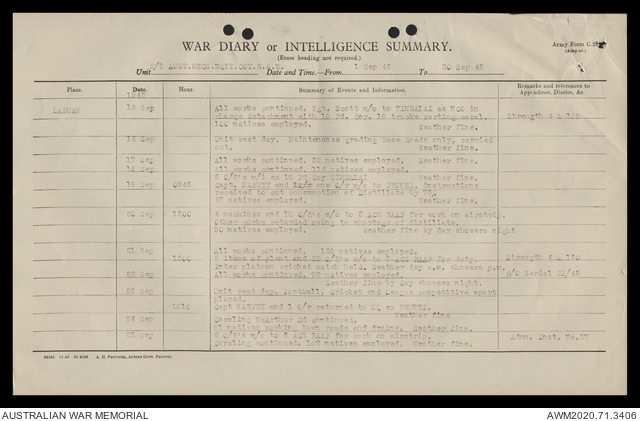 WAR DIARY or INTELLIGENCE SUMMARY.
(Erase heading not required.)
Army Form C.
Unit 2/1 AUST. MECH. EQPT. COY. R.A.E. Date and Time.—From 1 Sep 45 To 30 Sep 45
Place. Date. Hour. Summary of Events and Information. Remarks and references to Appendices, Diaries, &c.
1945
LABUAN 15 Sep All works continued. Sgt. Scott m/o to TIMBALAI as NCO in
charge detachment with Fd. Coy. 16 trucks carting coral. Strength 4 &
100 natives employed. Weather fine.
16 Sep Unit rest day. Maintenance grading Base Roads only, carried
out. Weather fine.
17 Sep All works continued. natives employed. Weather fine.
18 Sep All works continued. 114 natives employed.
O/R's m/i as Fd Coy TIMBALAI Weather fine.
19 Sep 0845 Capt. HARVEY and one O/R m/o to instructions
received to cut consumption of Distillate by
natives employed. Weather fine.
20 Sep 1500 4 machines and 15 O/R's m/o to 5 ACS RAAF for work on airstrip.
Other works retarded owing to shortage of distillate.
90 natives employed. Weather fine by day showers night
21 Sep All works continued. 120 natives employed.
1300 items of plant and O/R's m/o to 5 ACS RAAF for duty. Strength 6 & 150
Inter platoon cricket match held. Weather dry a.m. showers p.m.
22 Sep All works continued. natives employed. R/O Serial 20/45
Weather fine by day showers night.
23 Sep Unit rest day. Football, Cricket and League competitive sport
played.
1510 Capt HARVEY and 1 O/R returned to HQ ex
Weather fine
24 Sep Coraling McArthur Rd continued.
natives working town roads and drains. Weather fine.
25 Sep O/R's m/o to 5 ACS RAAF for work on airstrip. Adm. Inst. No.
Coraling continued. natives employed. Weather fine.
A. H. PETTIFER, ACTING GOVT. PRINTER.
AUSTRALIAN WAR MEMORIAL
AWM2020.71.3406